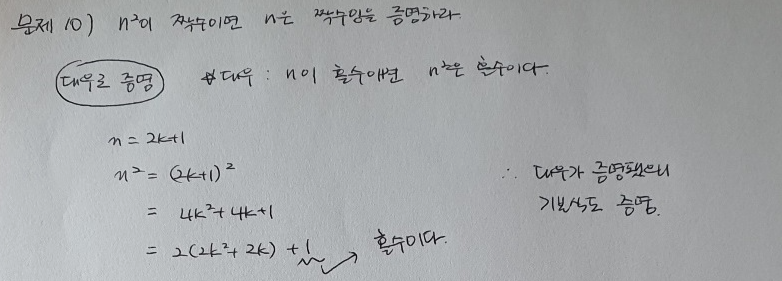 문제 10) n²이 짝수이면 n은 짝수임을 증명하라
대우로 증명 * 대우 : n이 홀수이면 n²은 홀수이다.
n = 2k+1
n² = (2k+1)²
= 4k²+4k+1
= 2(2k²+2k) +1 → 홀수이다.
∴ 대우가 증명됐으니
기본식도 증명.